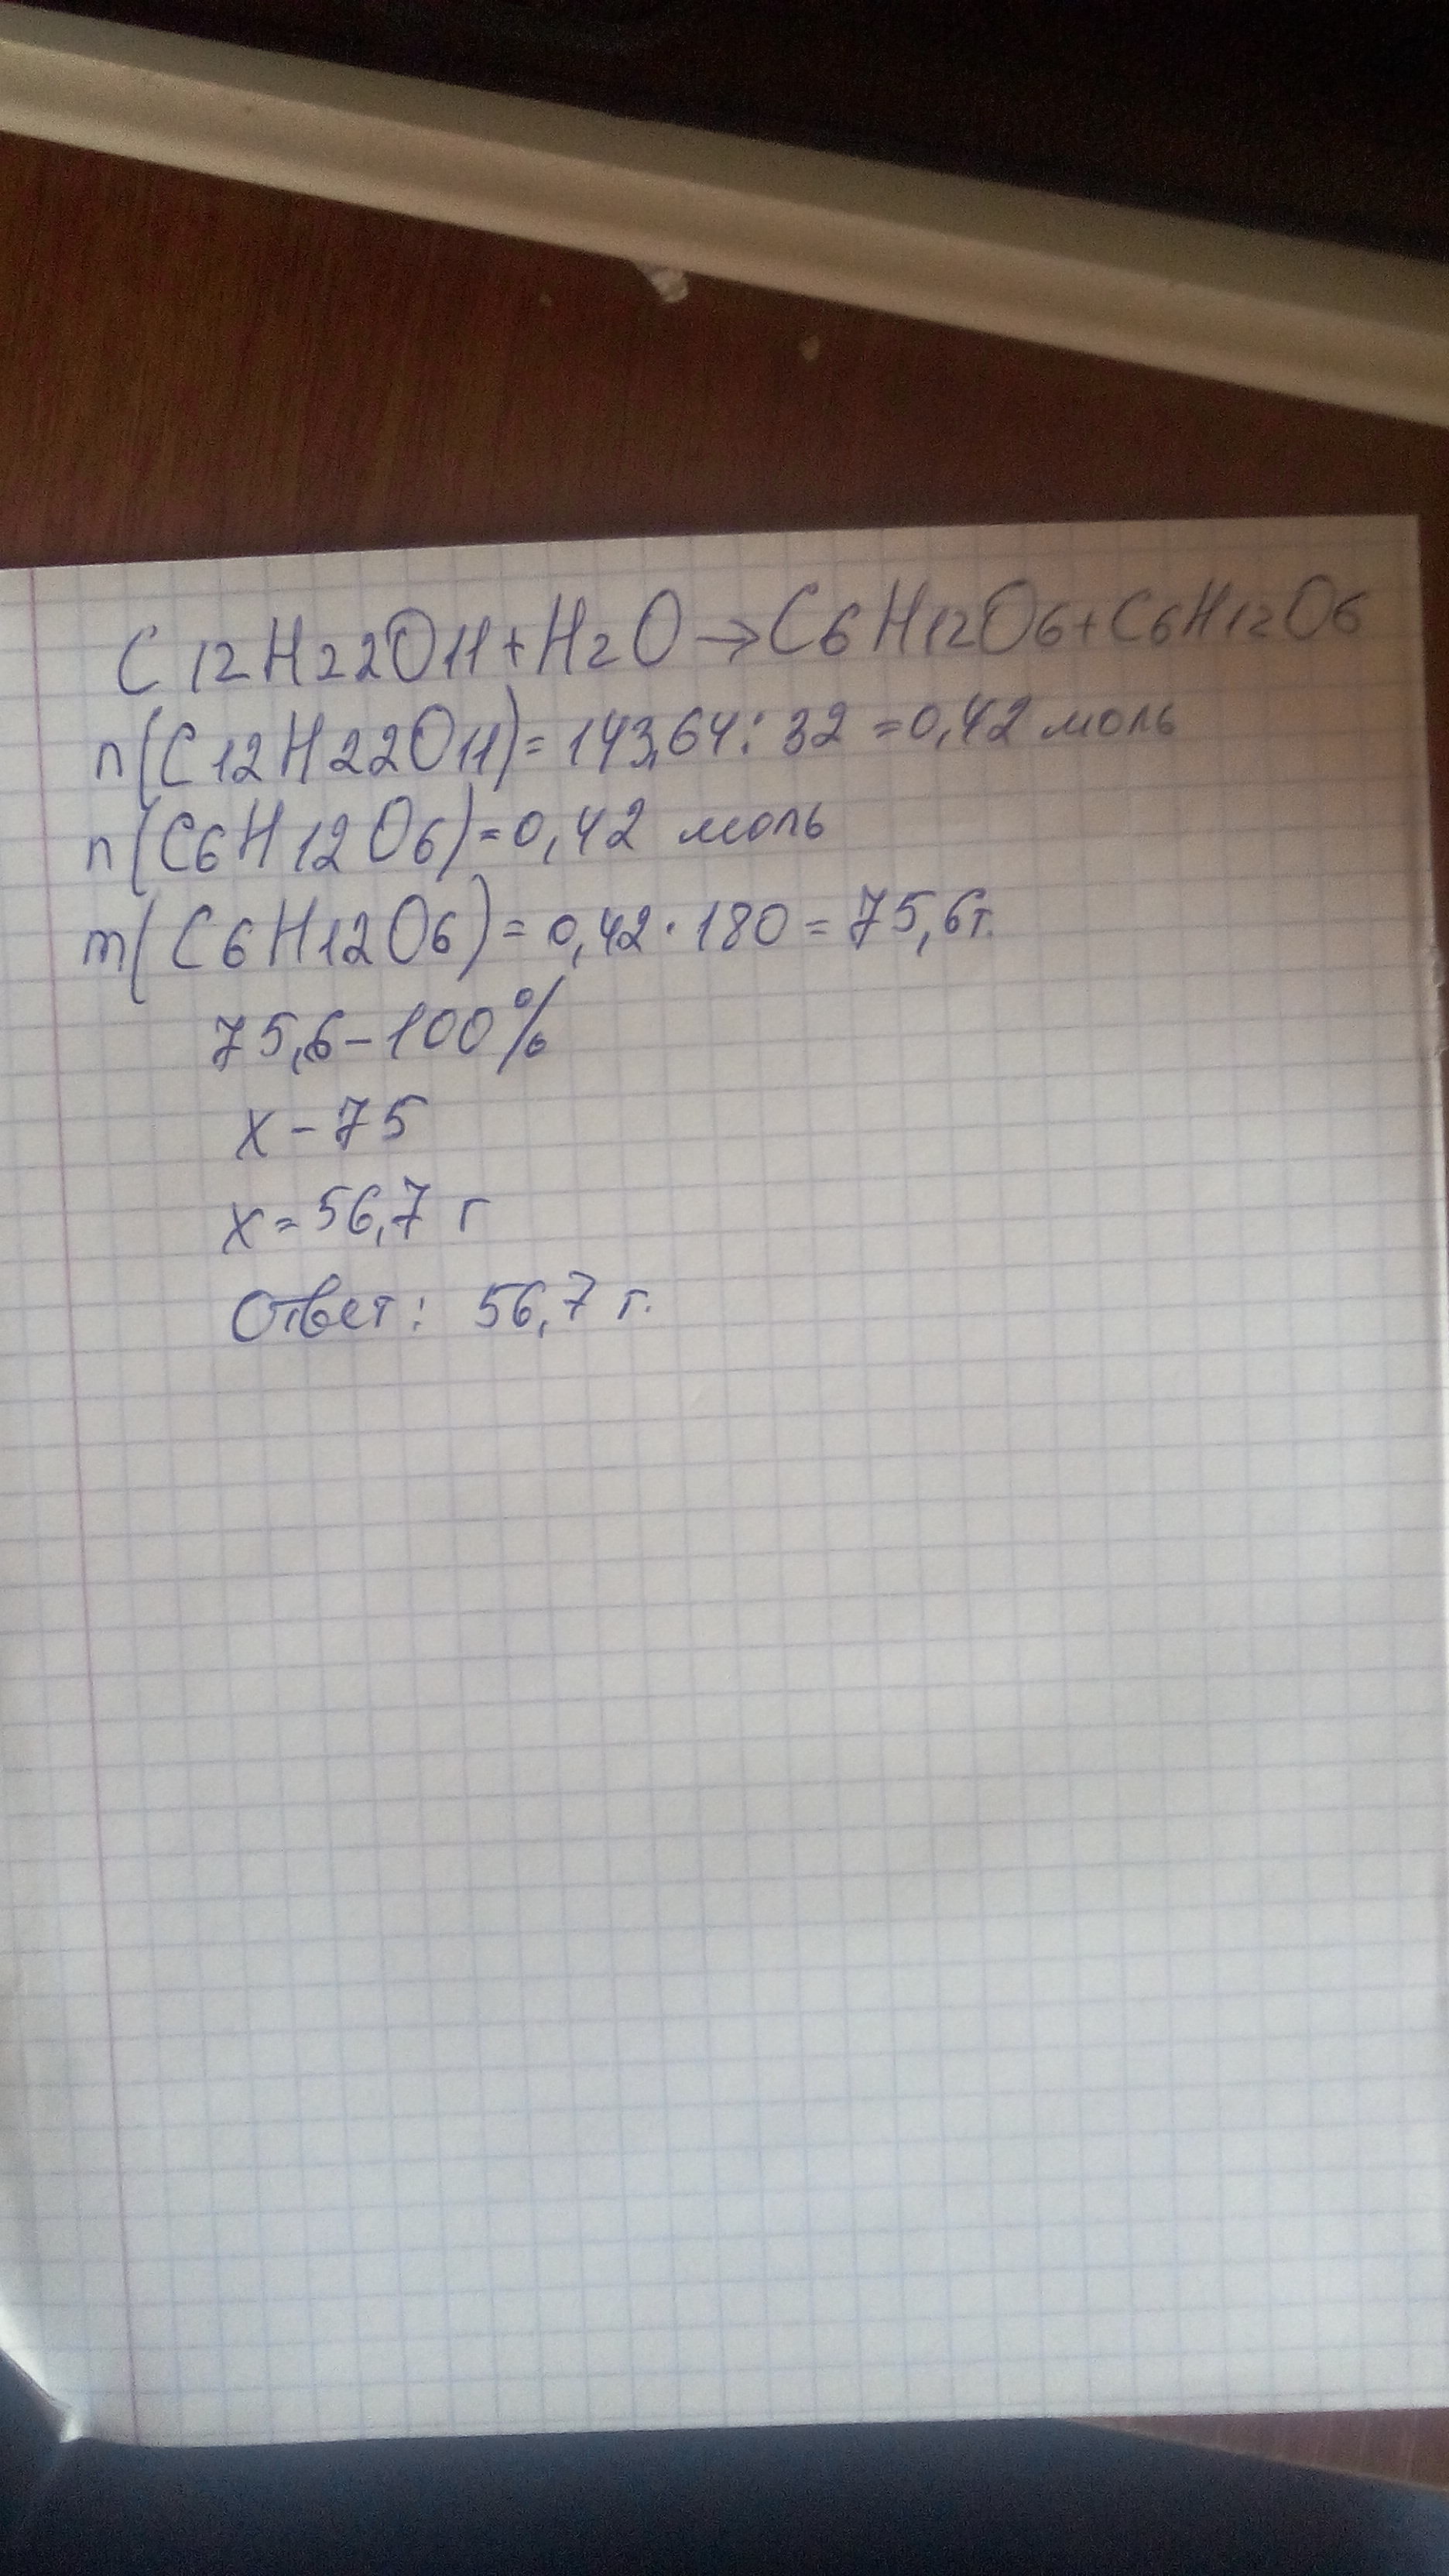 C12H22O11+H2O→C6H12O6+C6H12O6
n(C12H22O11)=143,64:32=0,42 моль
n(C6H12O6)=0,42 моль
m(C6H12O6)=0,42·180=75,6г.
75,6-100%
x-75
x=56,7 г
Ответ: 56,7 г.